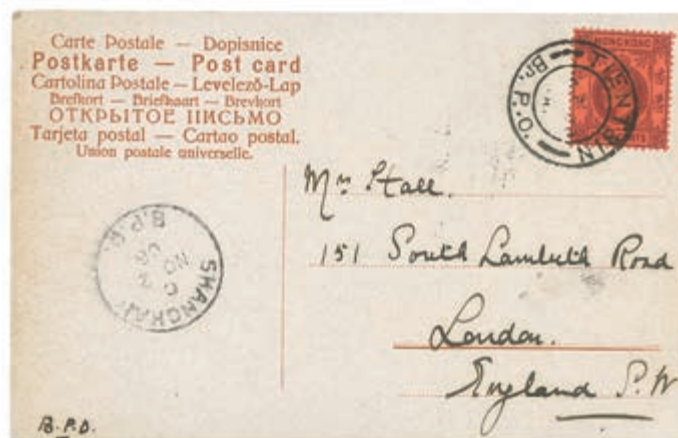 Carte Postale — Dopisnice
Postkarte — Post card
Cartolina Postale — Levelező-Lap
Brefkort — Briefkaart — Brevkort
ОТКРЫТОЕ ПИСЬМО
Tarjeta postal — Cartao postal.
Union postale universelle.
HONGKONG
TIENTSIN
Br. P.O.
Mrs Hall.
151 South Lambeth Road
London.
England S.W
SHANGHAI
B.P.O.
NO
06
B.P.O.